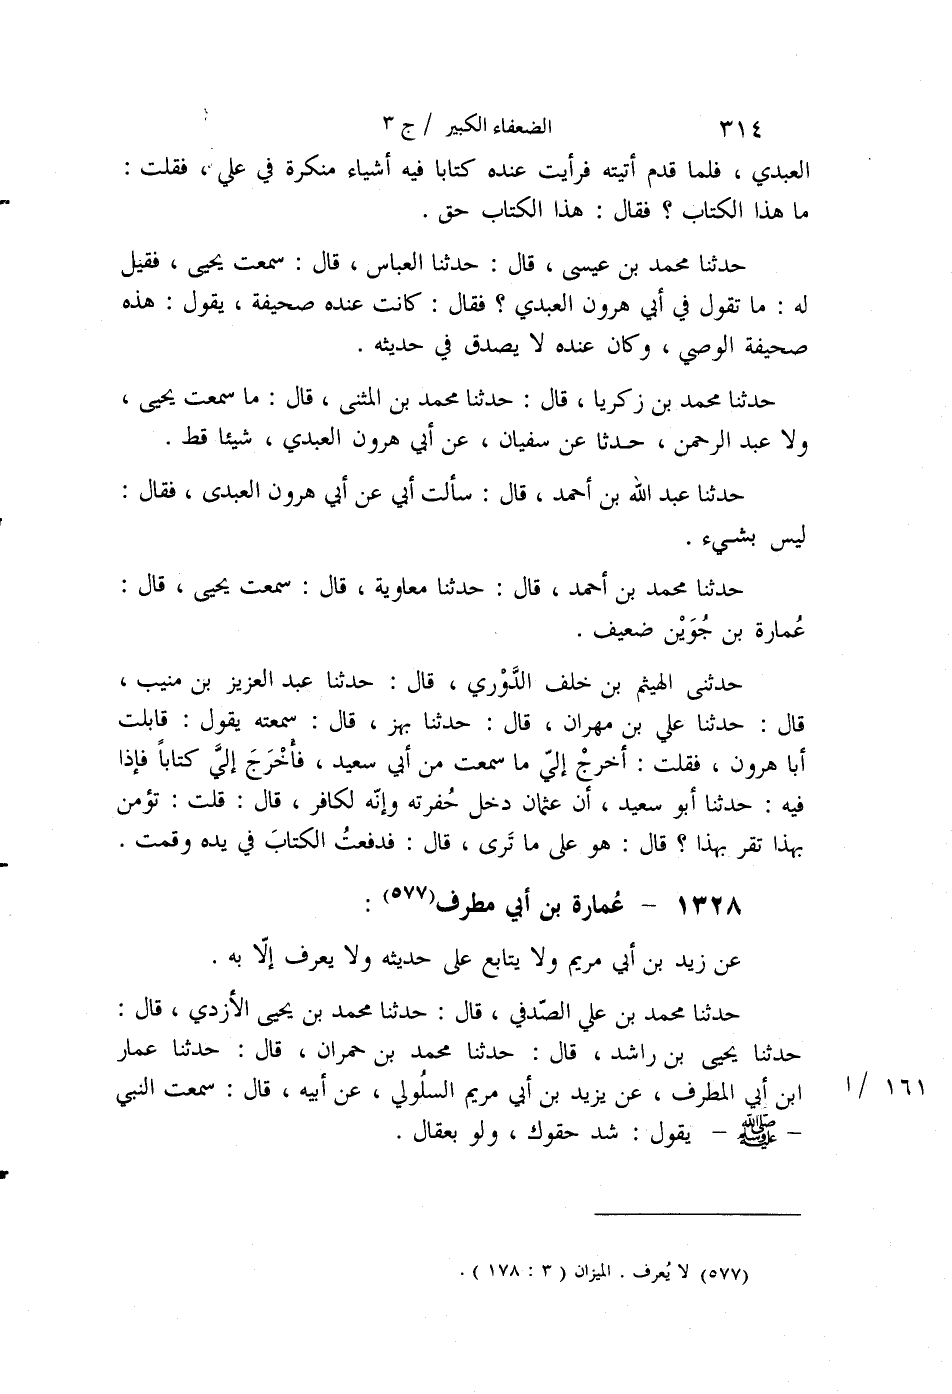 ٣١٤ الضعفاء الكبير / ج ٣
العبدي ، فلما قدم أتيته فرأيت عنده كتابا فيه أشياء منكرة في علي ، فقلت :
ما هذا الكتاب ؟ فقال : هذا الكتاب حق .
حدثنا محمد بن عيسى ، قال : حدثنا العباس ، قال : سمعت يحيى ، فقيل
له : ما تقول في أبي هرون العبدي ؟ فقال : كانت عنده صحيفة ، يقول : هذه
صحيفة الوصي ، وكان عنده لا يصدق في حديثه .
حدثنا محمد بن زكريا ، قال : حدثنا محمد بن المثنى ، قال : ما سمعت يحيى ،
ولا عبد الرحمن ، حدثا عن سفيان ، عن أبي هرون العبدي ، شيئا قط .
حدثنا عبد الله بن أحمد ، قال : سألت أبي عن أبي هرون العبدى ، فقال :
ليس بشيء .
حدثنا محمد بن أحمد ، قال : حدثنا معاوية ، قال : سمعت يحيى ، قال :
عُمارة بن جُوَيْن ضعيف .
حدثنى الهيثم بن خلف الدَّوْري ، قال : حدثنا عبد العزيز بن منيب ،
قال : حدثنا علي بن مهران ، قال : حدثنا بهز ، قال : سمعته يقول : قابلت
أبا هرون ، فقلت : أخرجْ إليّ ما سمعت من أبي سعيد ، فأَخْرَجَ إليَّ كتاباً فإذا
فيه : حدثنا أبو سعيد ، أن عثمان دخل حُفرته وإنّه لكافر ، قال : قلت : تؤمن
بهذا تقر بهذا ؟ قال : هو على ما تَرى ، قال : فدفعتُ الكتابَ في يده وقمت .
١٣٢٨ – عُمارة بن أبي مطرف(٥٧٧) :
عن زيد بن أبي مريم ولا يتابع على حديثه ولا يعرف إلّا به .
حدثنا محمد بن علي الصّدفي ، قال : حدثنا محمد بن يحيى الأزدي ، قال :
حدثنا يحيى بن راشد ، قال : حدثنا محمد بن حمران ، قال : حدثنا عمار
ابن أبي المطرف ، عن يزيد بن أبي مريم السلُولي ، عن أبيه ، قال : سمعت النبي
١٦١ / ا
– ﷺ – يقول : شد حقوك ، ولو بعقال .
(٥٧٧) لا يُعرف . الميزان ( ٣ : ١٧٨ ) .